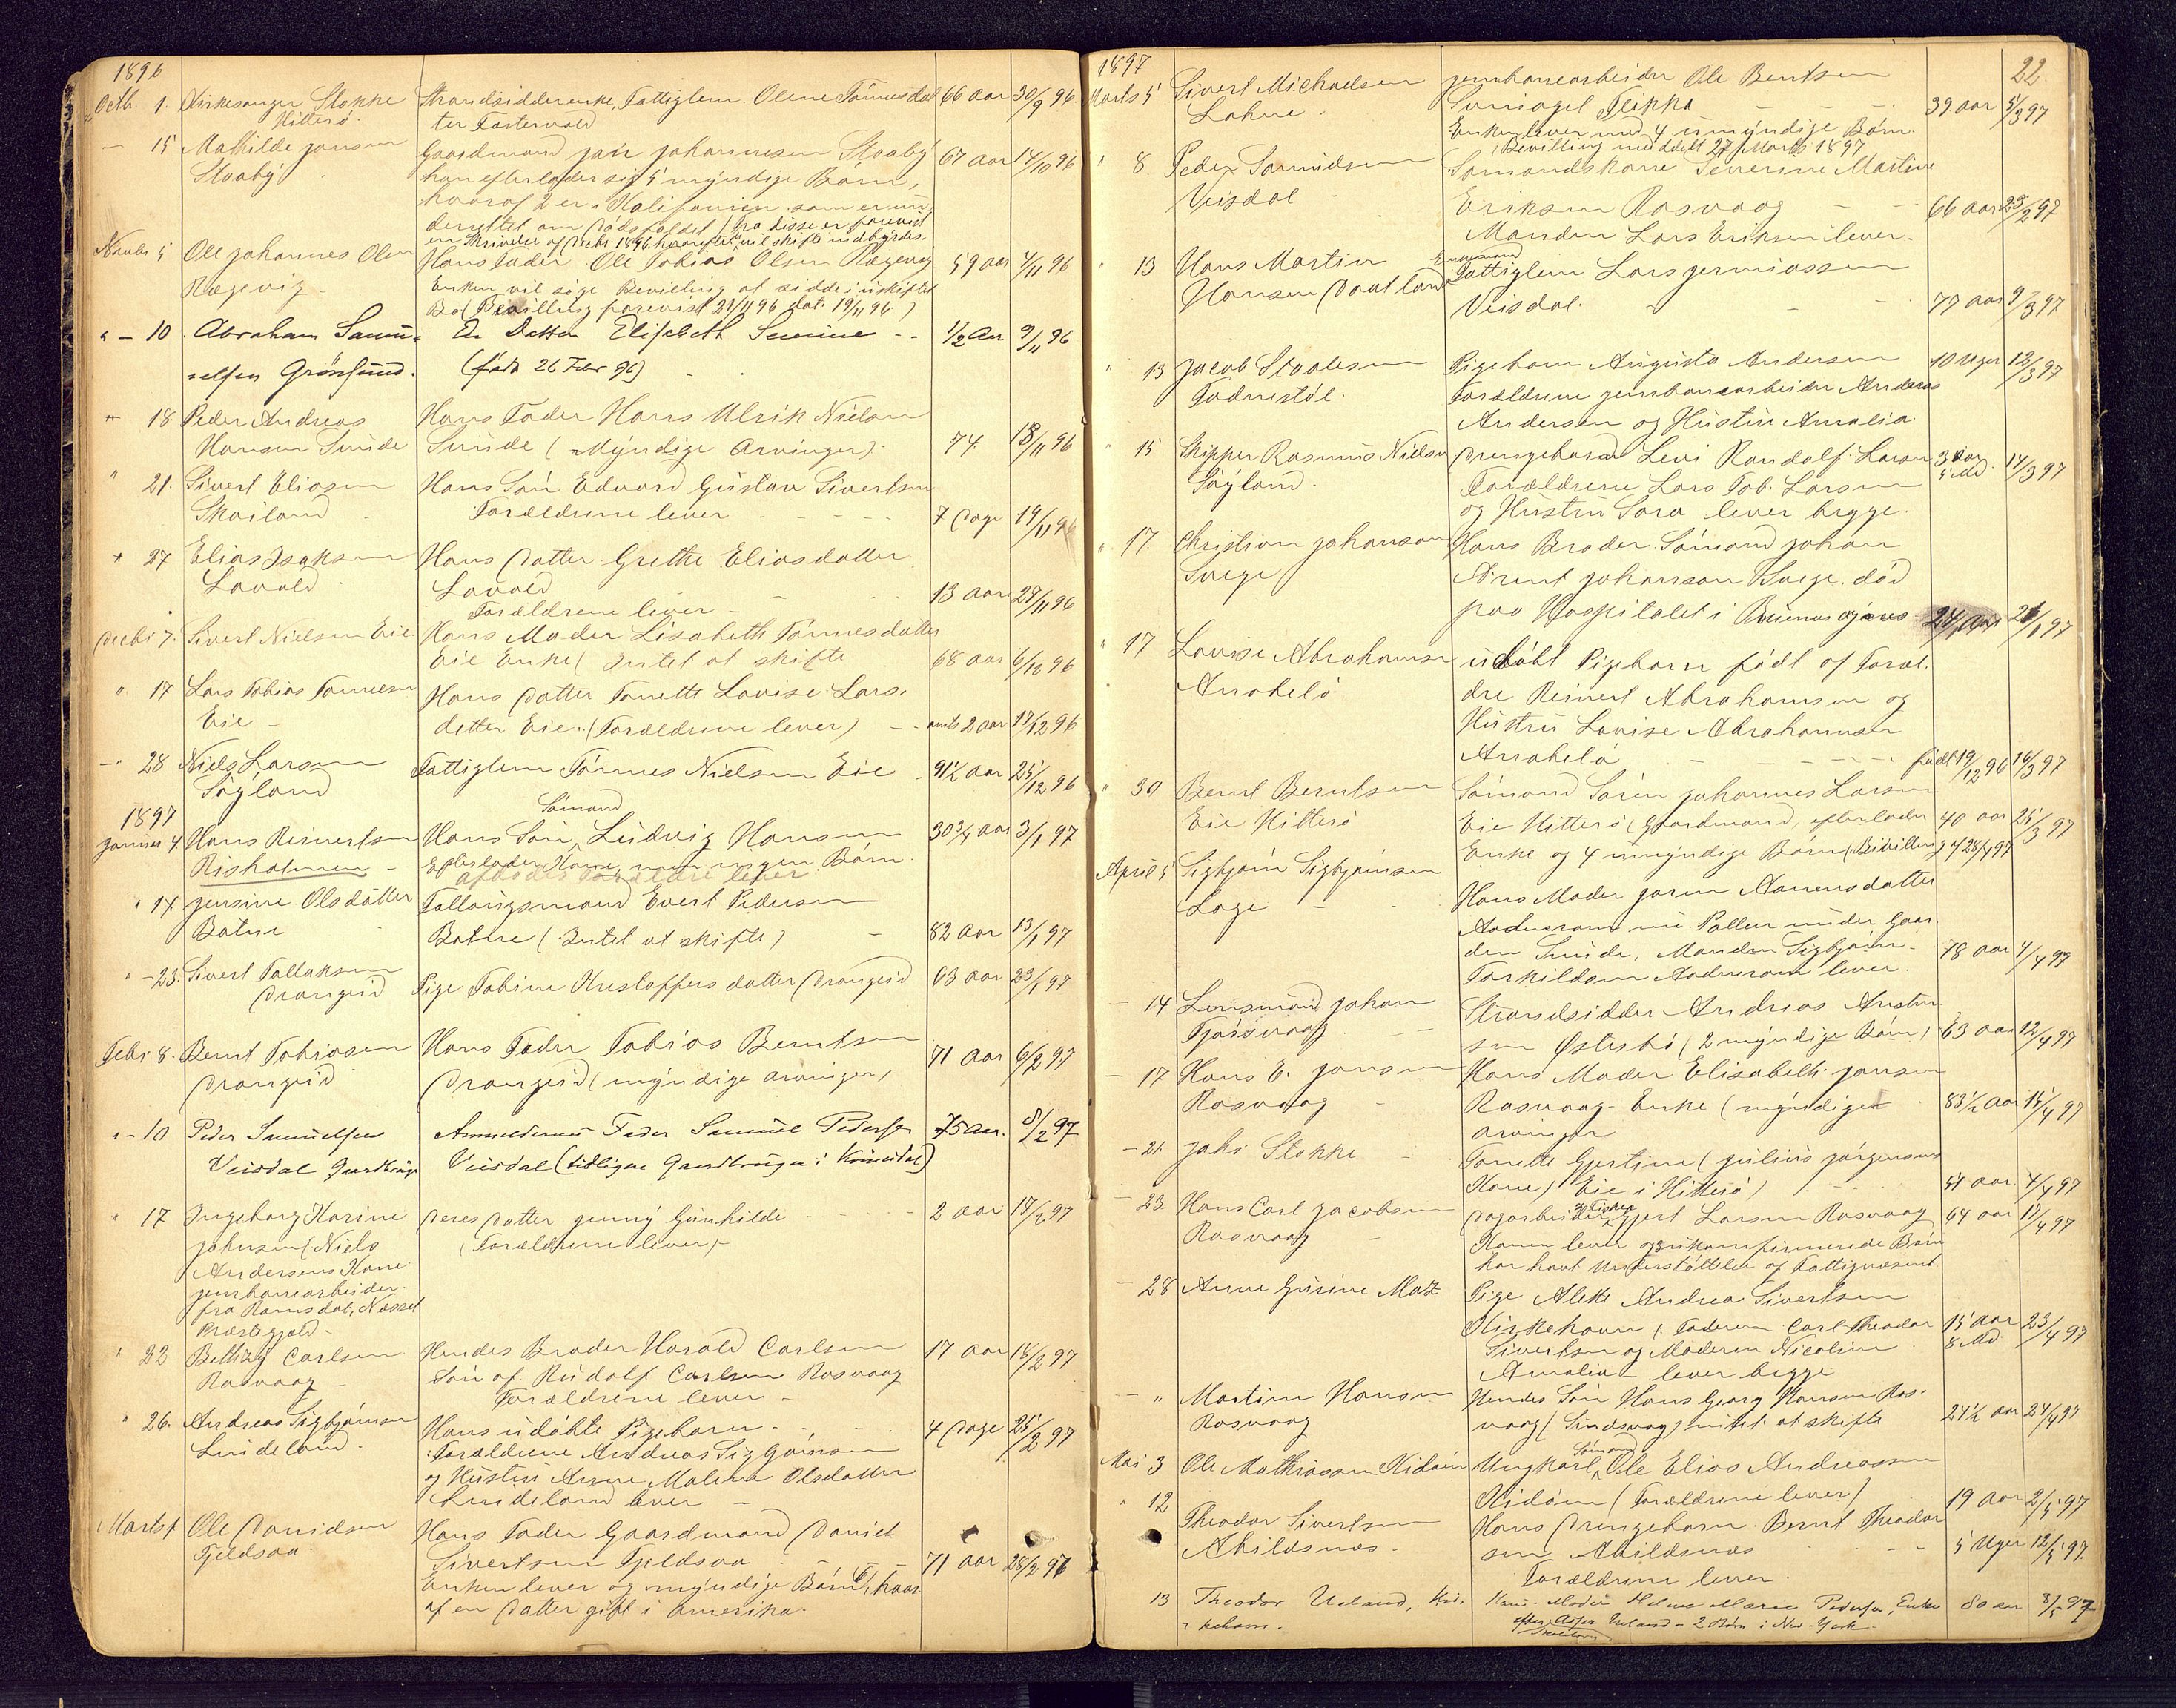 1896
Octb. 1. Kirkesanger Stokke Strandsidderenke, Fattiglem Olene Tønnesdat 66 aar 30/9 96
Hitterö. ter Fostervold
— 15 Mathilde Jansen Gaardmand Jan Johannesen Staaby 67 aar 14/10 96
Staaby han efterlader sig 5 myndige Børn,
hvoraf 2 er i Kalifonien som er un
derrettet om Dødsfaldet
Novbr 5 Ole Johannes Olsen Hans Fader Ole Tobias Olsen Rægevig 59 aar 4/11 96
Rægevig Enken vil söge Bevilling at sidde i uskiftet
Bo (Bevilling forevist 21/11 96 dat. 19/11 96)
" — 10 Abraham Samu- En Datter Elisabeth Severine -- 1/2 Aar 9/11 96
elsen Grönsund. (född 26 Febr 96)
18 Peder Andreas Hans Fader Hans Ulrik Nielsen
Hansen Sunde Sunde (Myndige Arvinger). 74 18/11 96
" 21. Sivert Eliasen Hans Sön Edvard Gustav Sivertsen
Skailand Forældrene lever 7 Dage 19/11 96
27 Elias Isaksen Hans Datter Grethe Eliasdatter
Lavold Lavold 13 aar 23/11 96
Forældrene lever —
Decbr 7. Sivert Nielsen Eie Hans Moder Lisabeth Tönnesdatter
Eie Enke (Intet at skifte 68 aar 6/12 96
" 17 Lars Tobias Tönnesen Hans Datter Tonette Lovise Lars-
Eie — datter Eie. (Forældrene lever) -- omtr 2 aar 17/12 96
— " 28 Niels Larsen Fattiglem Tönnes Nielsen Eie 91 1/2 aar 25/12 96
Söyland
1897 Sömand
Januar 4 Hans Reinertsen Hans Sön Ludvig Hansen 30 3/4 aar 3/1 97
Risholmen — Efterlader Kone men ingen Børn.
afdödes Forældre lever
" 14 Jensine Olsdatter Fattigsmand Evert Pedersen
Batne Batne (Intet at skifte) 82 aar 13/1 97
" — 23. Sivert Tollaksen Pige Tobine Kristoffersdatter Drangeid 63 aar 23/1 97
Drangeid
Febr 8. Bernt Tobiasen Hans Fader Tobias Berntsen 71 aar 6/2 97
Drangeid Drangeid (myndige arvinger)
" — 10 Peder Samuelsen Anmeldernes Fader Samuel Pedersen 75 aar. 8/2 97
Veisdal Gaardbruger Veisdal (tidligere Gaardbruger i Kvinesdal)
" 17 Ingeborg Karine Deres Datter Jenny Gunhilde 2 aar 17/2 97
Johnsen (Niels (Forældrene lever) —
Andersens Kone
jernbanearbeider
fra Ramsdal, Næsset
Præstegjæld —
" 22 Bethzy Carlsen Hendes Broder Harald Carlsen 17 aar 18/2 97
Rasvaag — Sön af Rudolf Carlsen Rasvaag
Forældrene lever —
" 26. Andreas Sigbjörnsen Hans udöbte Pigebarn — 4 Dage 25/2 97
Lindeland. Forældrene Andreas Sigbjörnsen
og Hustru Anne Malene Olsdatter
Lindeland lever —
Marts 1 Ole Danielsen Hans Fader Gaardmand Daniel
Fjeldsaa. Sivertsen Fjeldsaa 71 aar 28/2 97
Enken lever og myndige Børn 6, hvor
af en Datter gift i Amerika.
1897 22.
Marts 5 Sivert Michaelsen jernbanearbeider Ole Bentsen
Lohne. Flikka 39 aar 5/3 97
Enken lever med 4 umyndige Børn.
(Bevilling meddelt 27 Marts 1897
" 8 Peder Samuelsen Sömandskone Severine Martine
Veisdal Eriksen Rasvaag — — 66 aar 23/2 97
Manden Lars Eriksen lever.
" 13 Hans Martin Enkemand Fattiglem Lars Jermiassen
Hansen Veisdal. 77 aar 9/3 97
" 13 Jacob Staalesen Pigebarn Augusta Andersen 10 Uger 12/3 97
Fodnestöl. Forældrene jernbanearbeider Andreas
Andersen og Hustru Amalia
" 15 Skipper Rasmus Nielsen Drengebarn Levi Randolf Larsen 3 aar 14/3 97
Söyland. Forældrene Lars Tob. Larsen 5 Md.
og Hustru Sara lever begge.
" 17 Christian Johansen Hans Broder Sömand Johan
Svege Arent Johansen Svege död
paa Hospitalet i Buenos Ayres 24 aar 21/1 97
" 17 Lovise Abrahamsen udöbt Pigebarn född af Foræl-
Anabelö dre Reinert Abrahamsen og
Hustru Lovise Abrahamsen
Anabelö — — — född 19/12 96 16/3 97
" 30 Bernt Berntsen Sömand Sören Johannes Larsen
Eie Hitterö Eie Hitterö (Gaardmand, efterlader 40 aar 25/3 97
Enke og 4 umyndige Børn (Bevilling af 28/4 97
April 5 Sigbjörn Sigbjörnsen Hans Moder Joren Aanensdatter
Loge — paa Pollen under Gaar
den Sunde, Manden Sigbjörn 78 aar 4/4 97
Torkildsen lever.
— 14 Lensmand Johan Strandsidder Andreas Austen
Fjösvaag — sen Östebö (2 myndige Børn) 63 aar 12/4 97
— 17 Hans E. Jansen Hans Moder Elisabeth Jansen
Rasvaag Rasvaag. Enke (myndige 83 1/2 aar 15/4 97
arvinger
— 21. Jakob Stokke — Tonette Gjertine (Julius Jörgensens
Kone) Eie i Hitterö) 51 aar. 4/4 97
— 23. Hans Carl Jacobsen Dagarbeider og Fisker Gjert Larsen Rasvaag 64 aar 17/4 97
Rasvaag — Konen lever og 3 ukonfirmerede Børn
har havt Understöttelse af Fattigvæsenet
— 28 Anne Gurine Motz Pige Aleke Andrea Sivertsen
Kirkehavn (Faderen Carl Theodor 15 aar 23/4 97
Sivertsen og Moderen Nicoline 8 Md.
Amalia — lever begge
— " Martine Hansen Hendes Sön Hans Georg Hansen Ras-
Rasvaag vaag (Sindsvag) intet at skifte 24 1/2 aar 24/4 97
Mai 3 Ole Mathiassen Kidöen Ungkarl Sömand Ole Elias Andreassen
Kidöen (Forældrene lever) 19 aar 2/5 97
" 12 Theodor Sivertsen Hans Drengebarn Bernt Theodor
Abildsnæs. sen Abildsnæs 5 Uger 12/5 97
Forældrene lever.
13 Theodor Ueland, Kir- Hans Moder Helene Marie Pedersen, Enke 80 aar 8/5 97
kehavn. Ueland — 2 Børn i New-York